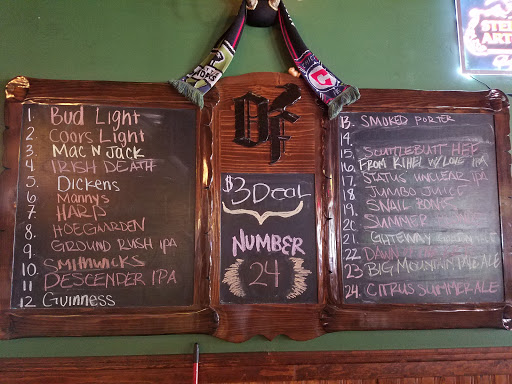 1. Bud Light
2. Coors Light
3. Mac N Jack
4. IRISH DEATH
5. Dickens
6. Mannys
7. HARP
8. HOEGARDEN
9. GROUND RUSH IPA
10. SMITHWICKS
11. DESCENDER IPA
12. Guinness
DF
$3 Deal
NUMBER
24
13. SMOKED PORTER
14.
15. SCUTTLEBUTT HEF
16. FROM KIHEI W/ LOVE IPA
17. STATUS UNCLEAR IPA
18. JUMBO JUICE
19. SNAIL BONES
20. SUMMER
21. GATEWAY
22. DAWN
23. BIG MOUNTAIN PALE ALE
24. CITRUS SUMMER ALE